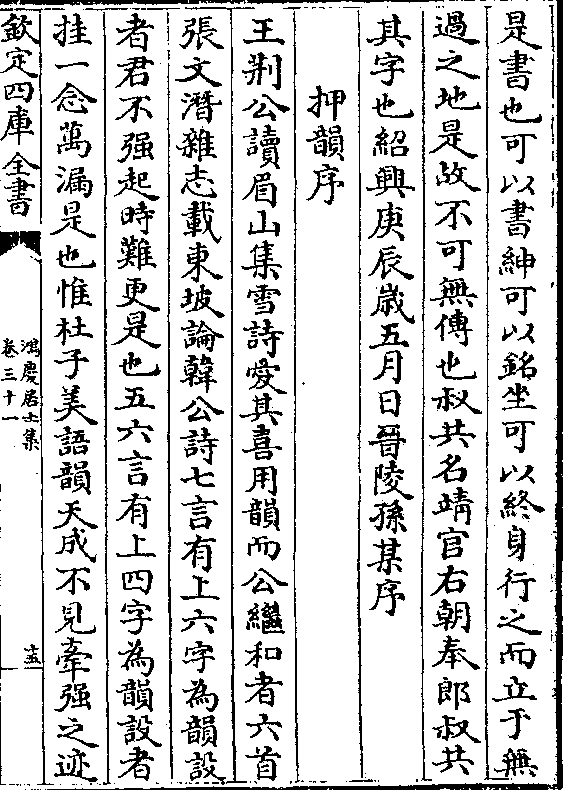 是書也可以書紳可以銘坐可以終身行之而立于無
過之地是故不可無傳也叔共名靖官右朝奉郎叔共
其字也紹興庚辰歲五月日晉陵孫某序
押韻序
王荆公讀眉山集雪詩愛其喜用韻而公繼和者六首
張文潛雜志載東坡論韓公詩七言有上六字為韻設
者君不强起時難更是也五六言有上四字為韻設者
挂一念萬漏是也惟杜子美語韻天成不見牽强之迹
欽定四庫全書
鴻慶居士集
卷三十一
十五